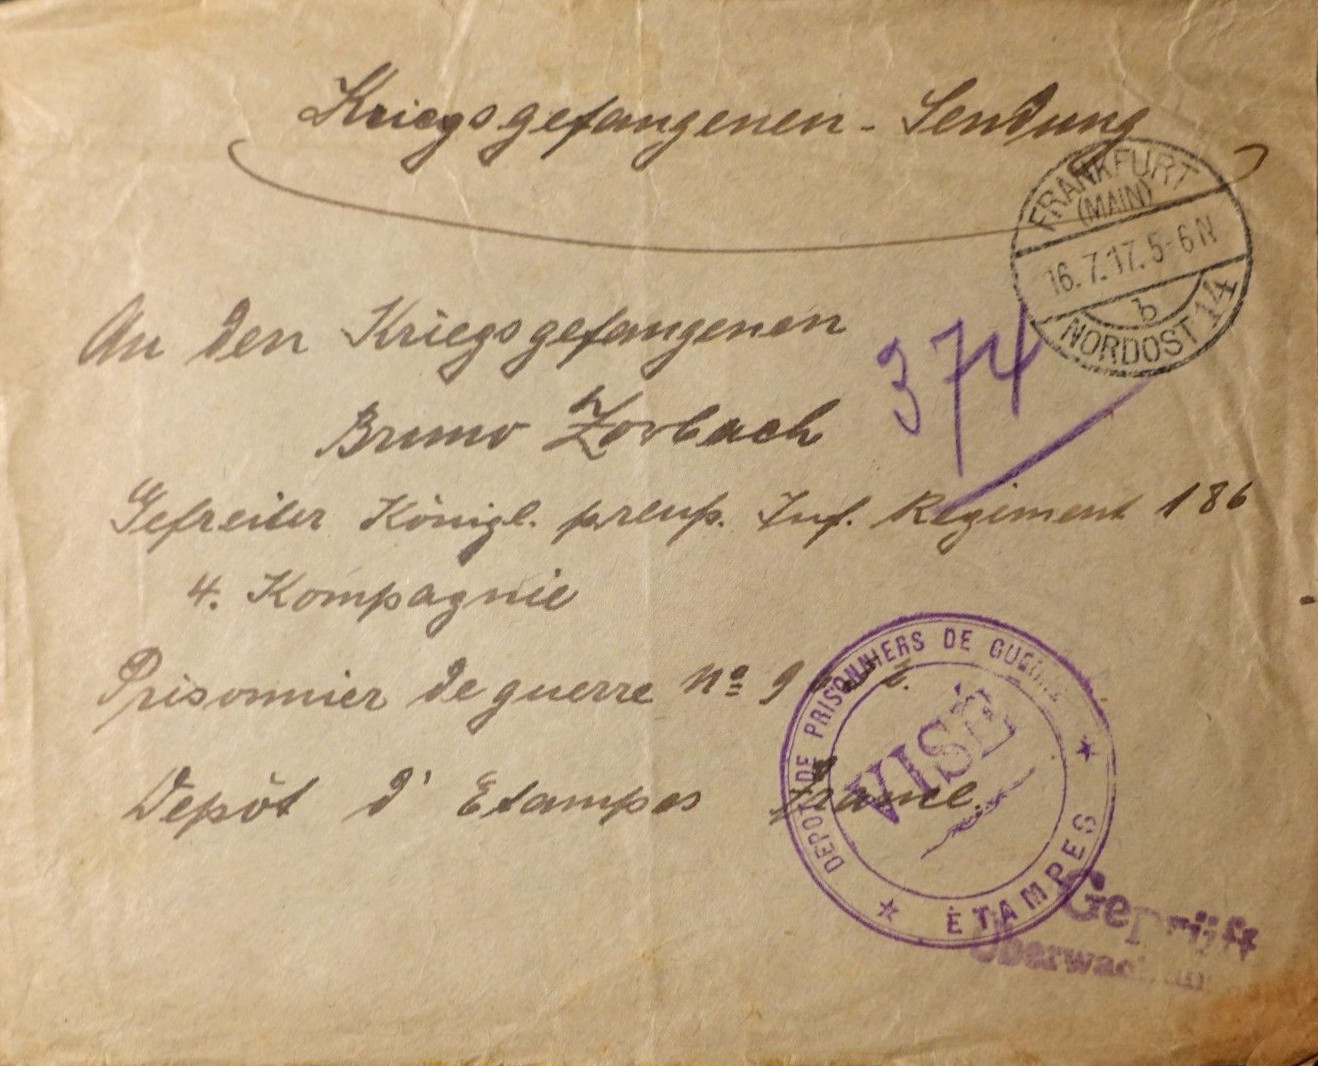 Kriegsgefangenen-Sendung
FRANKFURT
(MAIN)
16.7.17.5-6N
b
NORDOST 14
An den Kriegsgefangenen
374
Bruno Zorbach
Gefreiter Königl. preuß. Inf. Regiment 186
4. Kompagnie
Prisonnier de guerre No 9
Depôt d'Etampes France.
DEPOT DE PRISONNIERS DE GUERRE
VISÉ
ÉTAMPES
Geprüft